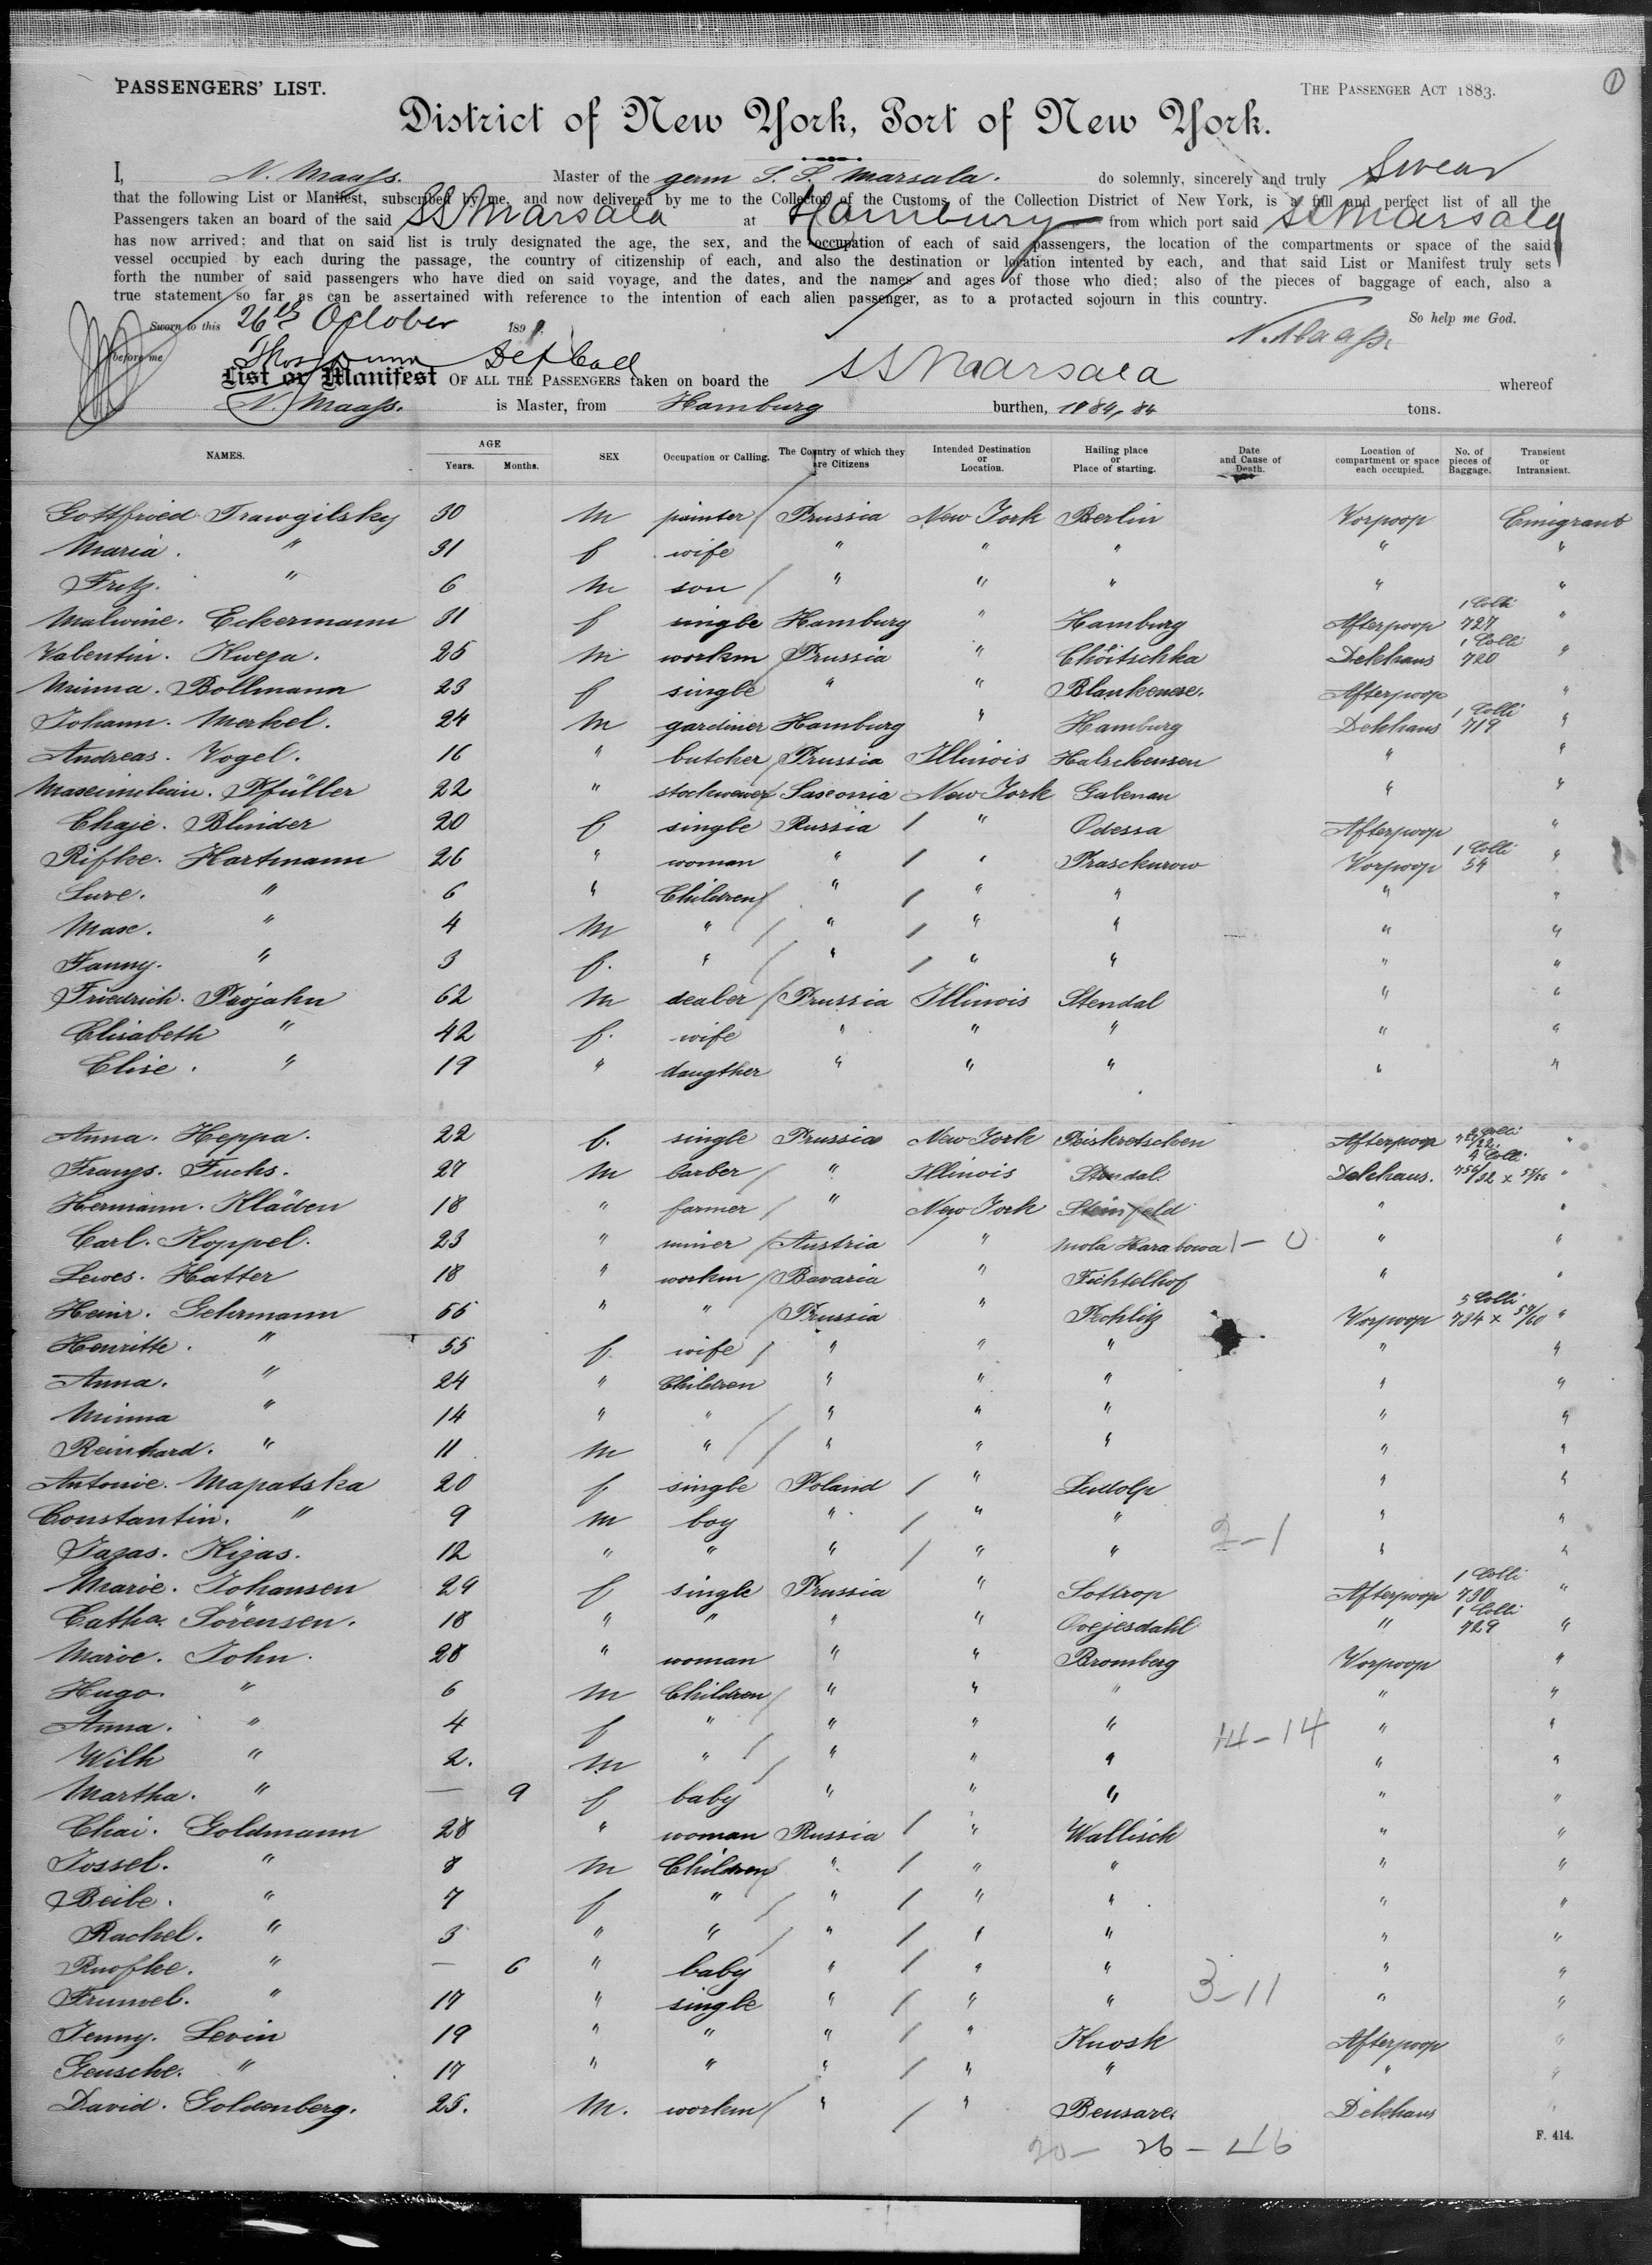 PASSENGERS' LIST. THE PASSENGER ACT 1883. 1
District of New York, Port of New York.
I, N. Maass. Master of the germ S. S. Marsala. do solemnly, sincerely and truly swear
that the following List or Manifest, subscribed by me, and now delivered by me to the Collector of the Customs of the Collection District of New York, is a full and perfect list of all the
Passengers taken an board of the said SS Marsala at Hamburg from which port said SS Marsala
has now arrived; and that on said list is truly designated the age, the sex, and the occupation of each of said passengers, the location of the compartments or space of the said
vessel occupied by each during the passage, the country of citizenship of each, and also the destination or location intented by each, and that said List or Manifest truly sets
forth the number of said passengers who have died on said voyage, and the dates, and the names and ages of those who died; also of the pieces of baggage of each, also a
true statement so far as can be assertained with reference to the intention of each alien passenger, as to a protacted sojourn in this country.
Sworn to this 26th October 189 So help me God.
N. Maass.
before me Thos Dunn
List or Manifest OF ALL THE PASSENGERS taken on board the SS Marsala whereof
N. Maass. is Master, from Hamburg burthen, 1884,84 tons.
NAMES. AGE Years. Months. SEX Occupation or Calling. The Country of which they are Citizens Intended Destination or Location. Hailing place or Place of starting. Date and Cause of Death. Location of compartment or space each occupied. No. of pieces of Baggage. Transient or Intransient.
Gottfried Trawgilsky 30 m painter Prussia New York Berlin Vorpoop Emigrant
Maria. " 31 f wife " " " " "
Fritz. " 6 m son " " " " "
Malwine. Eckermann 31 f single Hamburg " Hamburg Afterpoop 1 Colli 727 "
Valentin. Kweza. 25 m workm Prussia " Choitschka Dekhaus 1 Colli 720 "
Minna. Bollmann 23 f single " " Blankenese. Afterpoop "
Johann. Merkel. 24 m gardiner Hamburg " Hamburg Dekhaus 1 Colli 719 "
Andreas. Vogel. 16 " butcher Prussia Illinois Halschensen " "
Maximilian. Pfüller 22 " stockweaver Saxonia New York Gabenau " "
Chaje. Blinder 20 f single Russia " Odessa Afterpoop "
Rifke. Hartmann 26 " woman " " Praschurow Vorpoop 1 Colli 54 "
Sure. " 6 " Children " " " " "
Max. " 4 m " " " " " "
Fanny. " 3 f. " " " " " "
Friedrich. Projahn 62 m dealer Prussia Illinois Stendal " "
Elisabeth " 42 f. wife " " " " "
Elise. " 19 " daugther " " " " "
Anna. Heppa. 22 f. single Prussia New York Peiskretschen Afterpoop "
Franz. Fuchs. 27 m barber " Illinois Stendal. Dekhaus. 4 Colli "
Hermann. Kläden 18 " farmer " New York Steinfeld " "
Carl. Koppel. 23 " miner Austria " Mola Harabowa 1 - 0 " "
Lewes. Hatter 18 " workm Bavaria " Fichtelhof " "
Heinr. Gehrmann 56 " " Prussia " Pechlitz Vorpoop 5 Colli 734 x 57/60 "
Henritte. " 55 f wife " " " " "
Anna. " 24 " Children " " " " "
Minna " 14 " " " " " " "
Reinhard. " 11 m " " " " " "
Antonie. Mapatska 20 f single Poland " Ludolp " "
Constantin. " 9 m boy " " " 2-1 " "
Jazas. Kizas. 12 " " " " " " "
Marie. Johansen 29 f single Prussia " Sottrop Afterpoop 1 Colli 730 "
Catha. Sörensen. 18 " " " " Ovejesdahl " 1 Colli 729 "
Marie. John. 28 " woman " " Bromberg Vorpoop "
Hugo. " 6 m Children " " " " "
Anna. " 4 f " " " " 14-14 " "
Wilh " 2. m " " " " " "
Martha. " — 9 f baby " " " " "
Chai. Goldmann 28 " woman Russia " Wallisch " "
Jossel. " 8 m Children " " " " "
Beile. " 7 f " " " " " "
Rachel. " 3 " " " " " " "
Ruofke. " — 6 " baby " " " " "
Frumel. " 17 " single " " " 3-11 " "
Jenny. Levin 19 " " " " Knosk Afterpoop "
Geusche. " 17 " " " " " " "
David. Goldenberg. 25. m. workm " " Bensare. Dekhaus "
20 - 26 - 46
F. 414.